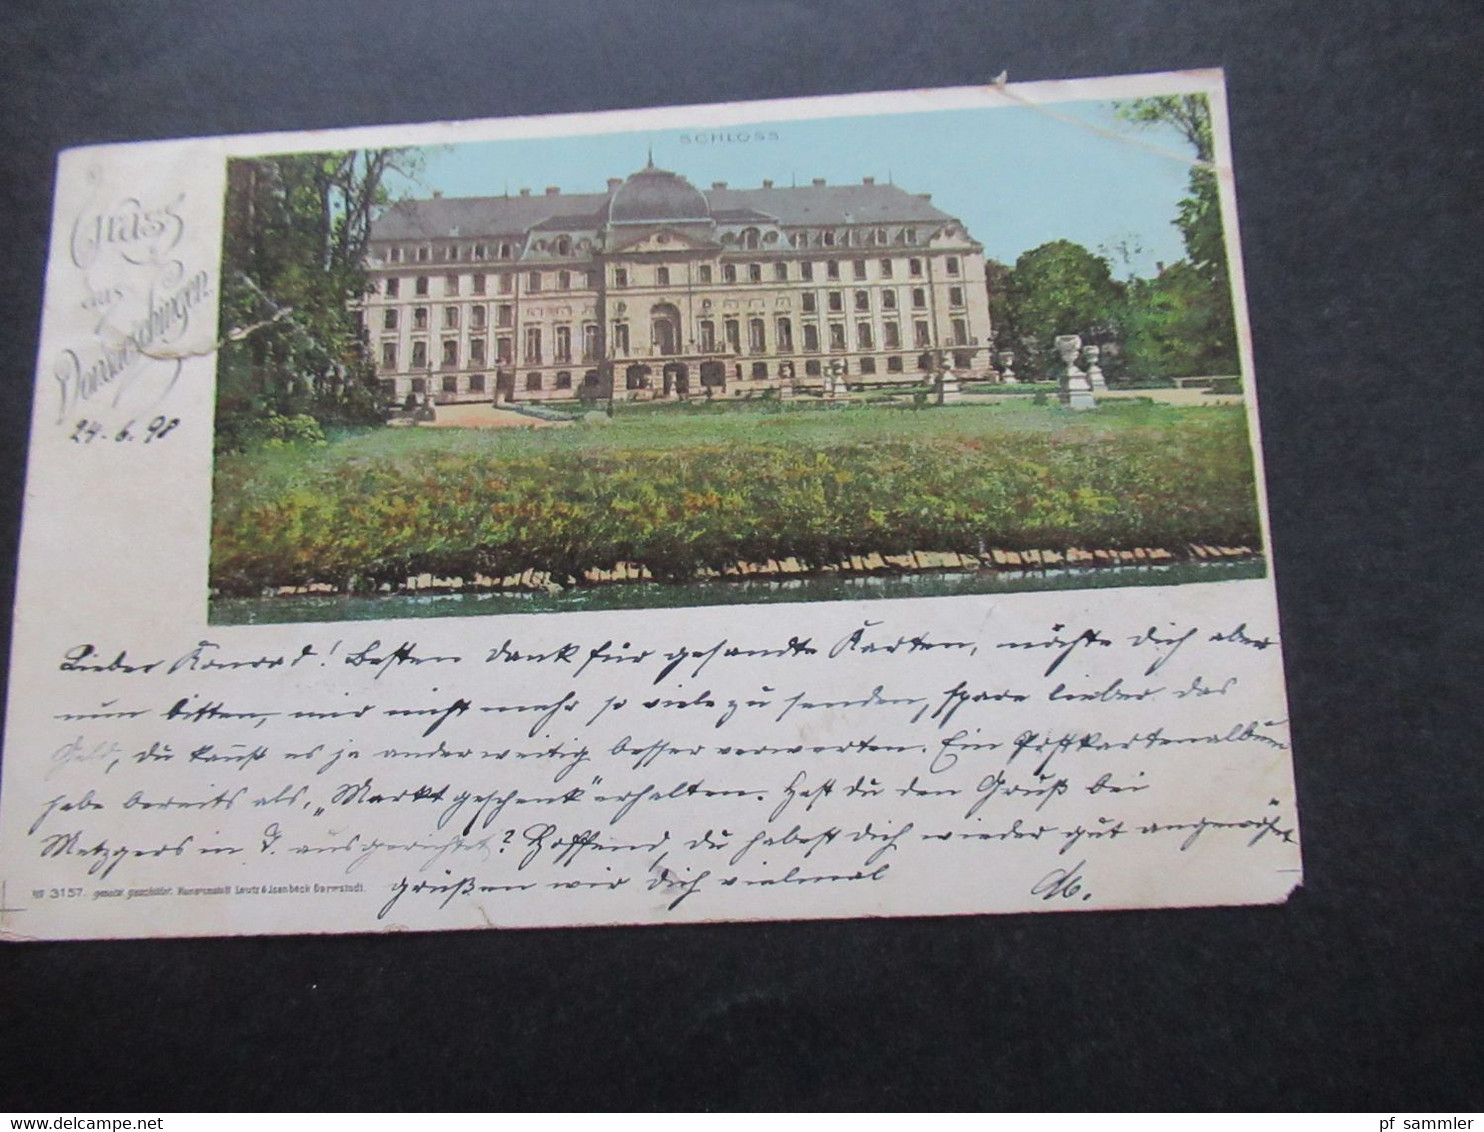 SCHLOSS
Gruss
aus
Donaueschingen.
24. 6. 98
Lieber Konrad! Besten Dank für gesandte Karten, möchte Dich aber
nun bitten, mir nicht mehr so viele zu senden, spare lieber das
Geld, Du kannst es ja anderweitig besser verwerten. Ein Postkartenalbum
habe bereits als „Marktgeschenk" erhalten. Hast du den Gruß bei
Metzgers in T. ausgerichtet? Hoffend, du habest Dich wieder gut angewöhnt
grüßen wir Dich vielmal
No 3157. gesetzl. geschützt. Kunstanstalt Lautz & Isenbeck Darmstadt.
pf_sammler
www.delcampe.net